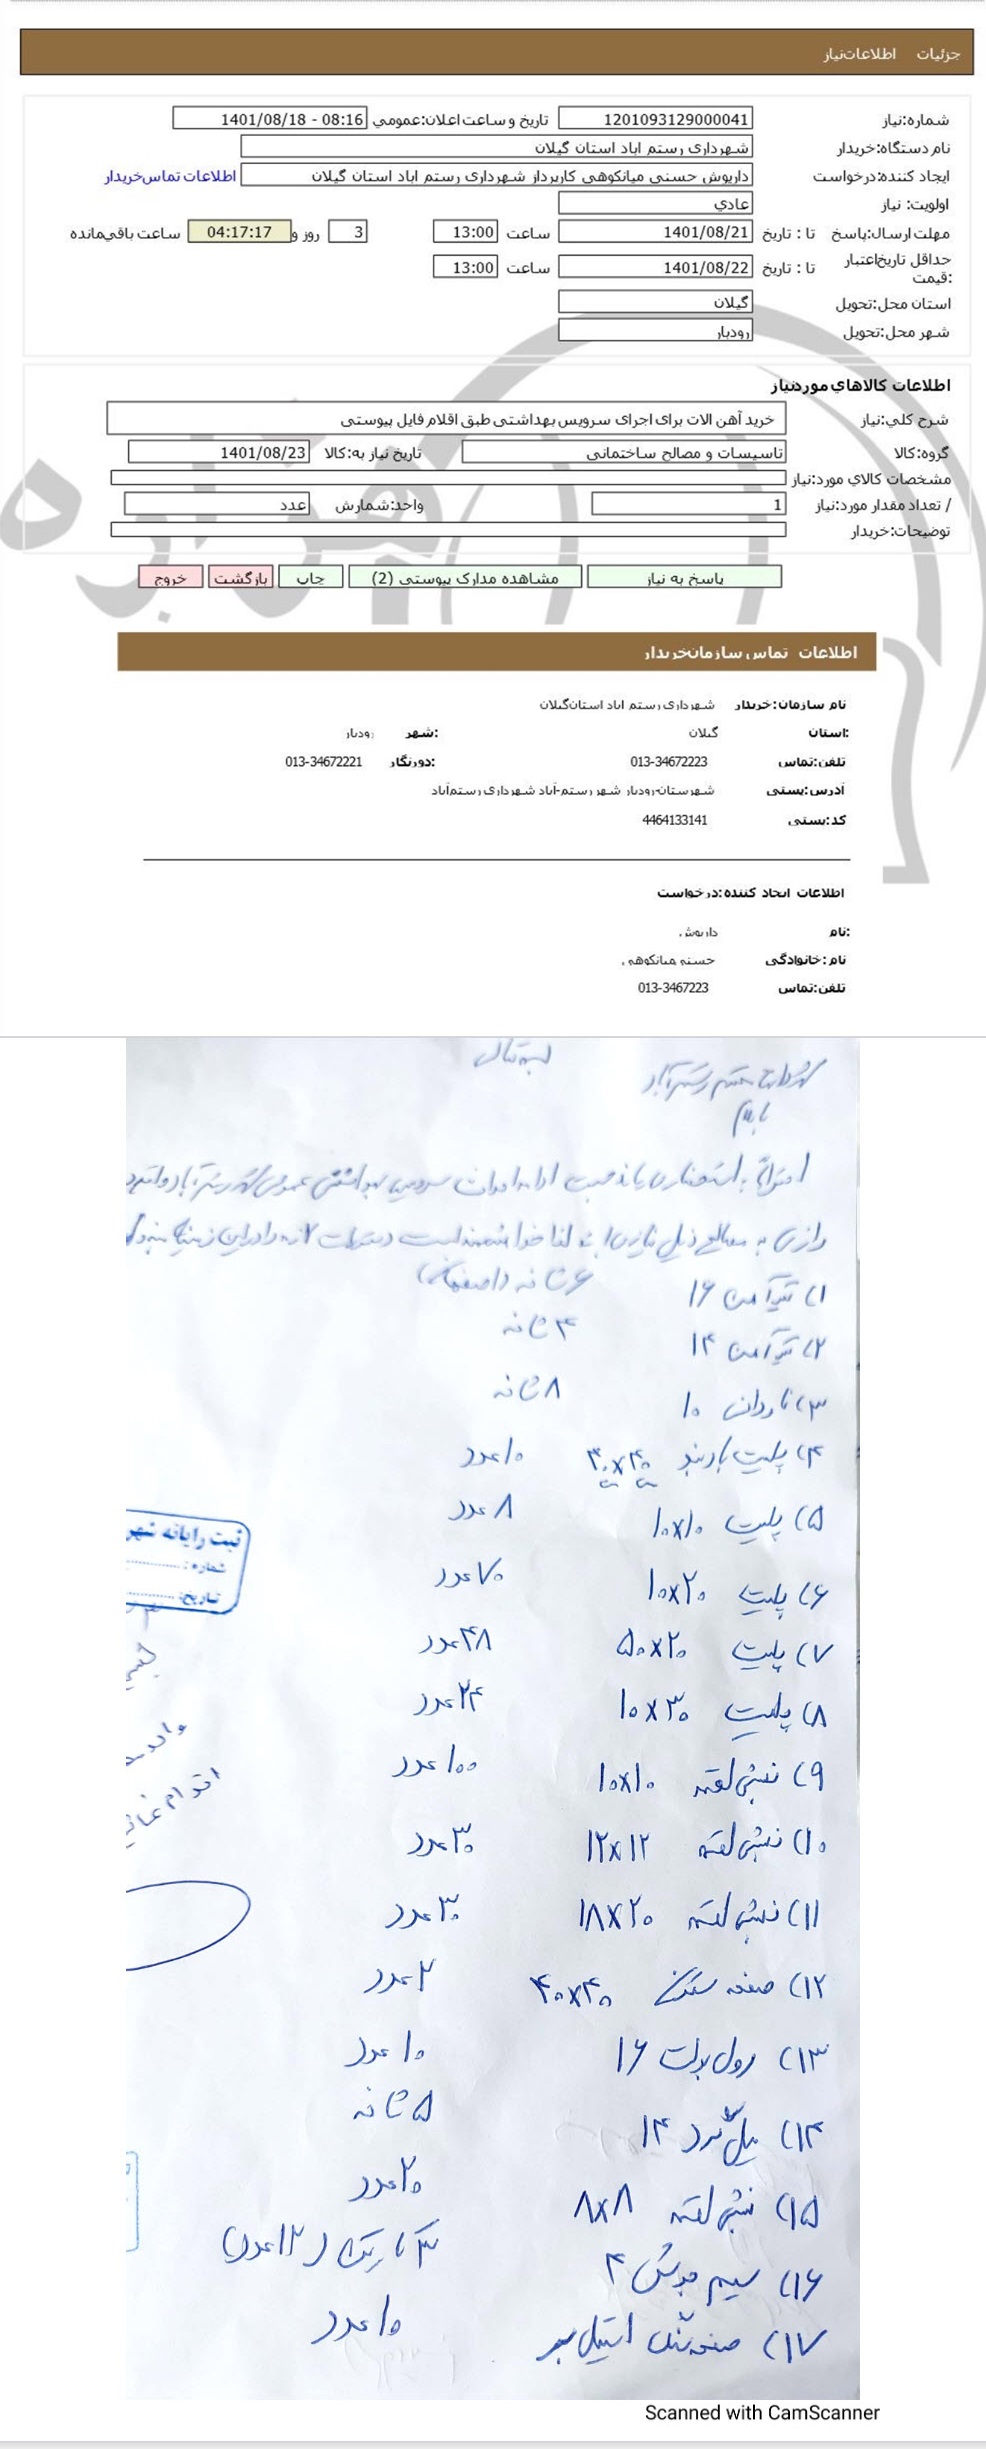 جزئیات اطلاعات نیاز
شماره نیاز: 1201093129000041 تاریخ و ساعت اعلان عمومي: 1401/08/18 - 08:16
نام دستگاه خریدار: شهرداری رستم اباد استان گیلان
ایجاد کننده درخواست: داریوش حسنی میانکوهی کارپرداز شهرداری رستم اباد استان گیلان اطلاعات تماس خریدار
اولویت نیاز: عادي
مهلت ارسال پاسخ: تا تاریخ: 1401/08/21 ساعت 13:00 3 روز و 04:17:17 ساعت باقی مانده
حداقل تاریخ اعتبار قیمت: تا تاریخ: 1401/08/22 ساعت 13:00
استان محل تحویل: گیلان
شهر محل تحویل: رودبار
اطلاعات کالاهاي مورد نیاز
شرح کلي نیاز: خرید آهن الات برای اجرای سرویس بهداشتی طبق اقلام فایل پیوستی
گروه کالا: تاسیسات و مصالح ساختمانی تاریخ نیاز به کالا: 1401/08/23
مشخصات کالاي مورد نیاز:
تعداد / مقدار مورد نیاز: 1 واحد شمارش: عدد
توضیحات خریدار:
پاسخ به نیاز مشاهده مدارک پیوستی (2) چاپ بازگشت خروج
اطلاعات تماس سازمان خریدار
نام سازمان خریدار: شهرداری رستم اباد استان گیلان
استان: گیلان شهر: رودبار
تلفن تماس: 013-34672223 دورنگار: 013-34672221
آدرس پستی: شهرستان رودبار شهر رستم-آباد شهرداری رستم آباد
کد پستی: 4464133141
اطلاعات ایجاد کننده درخواست:
نام: داریوش
نام خانوادگی: حسنی میانکوهی
تلفن تماس: 013-3467223
بسمه تعالی
شهردار محترم رستم آباد
با سلام
احتراماً به استحضار می‌رساند جهت ادامه احداث سرویس بهداشتی عمومی شهر رستم آباد
به مصالح ذیل نیاز می‌باشد لذا خواهشمند است دستورات لازم را در این زمینه
۱) تیرآهن ۱۶ ۶ شاخه (اصفهان)
۲) تیرآهن ۱۴ ۴ شاخه
۳) ناودان ۱۰ ۸ شاخه
۴) پلیت بادبند ۴۰x۴۰ ۱۰ عدد
۵) پلیت ۱۰x۱۰ ۸ عدد
۶) پلیت ۱۰x۲۰ ۷۰ عدد
۷) پلیت ۵۰x۲۰ ۴۸ عدد
۸) پلیت ۱۰x۳۰ ۲۴ عدد
۹) نبشی لقمه ۱۰x۱۰ ۱۰۰ عدد
۱۰) نبشی لقمه ۱۲x۱۲ ۳۰ عدد
۱۱) نبشی لقمه ۱۸x۲۰ ۳۰ عدد
۱۲) صفحه ستون ۴۰x۴۰ ۲ عدد
۱۳) رول بولت ۱۶ ۱۰ عدد
۱۴) میل گرد ۱۴ ۵ شاخه
۱۵) نبشی لقمه ۸x۸ ۲۰ عدد
۱۶) سیم جوش ۴ ۳ کارتن (۱۲ عدد)
۱۷) صفحه سنگ استیل بر ۱۰ عدد
ثبت رایانه شهر
شماره:
تاریخ:
اقدام
Scanned with CamScanner